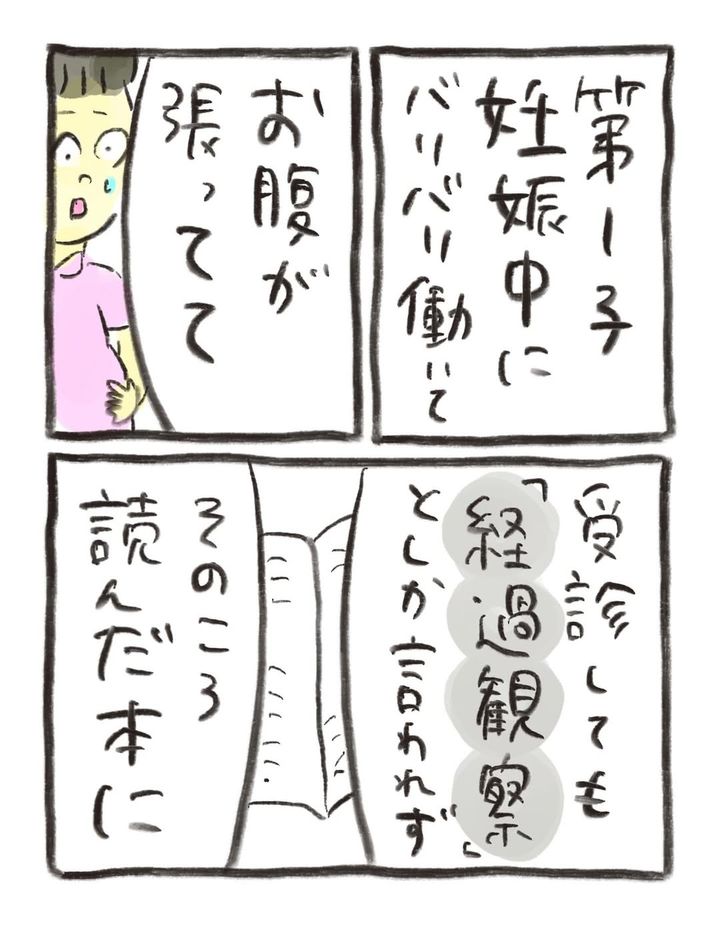 第1子
妊娠中に
バリバリ働いて
お腹が
張ってて
受診しても
「経過観察」
としか言われず
そのころ
読んだ本に